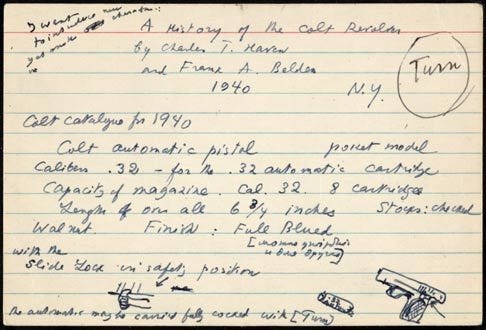 I want
to introduce
yet another
A History of the Colt Revolver
by Charles T. Haven
and Frank A. Belden
1940 N.Y.
Turn
Colt catalogue for 1940
Colt automatic pistol pocket model
Calibers .32 - for the .32 automatic cartridge
Capacity of magazine. Cal. 32. 8 cartridges
Length over all 6 3/4 inches Stocks: checked
Walnut Finish: Full Blued
with the
slide lock in safety position
The automatic may be carried fully cocked with [Turn]